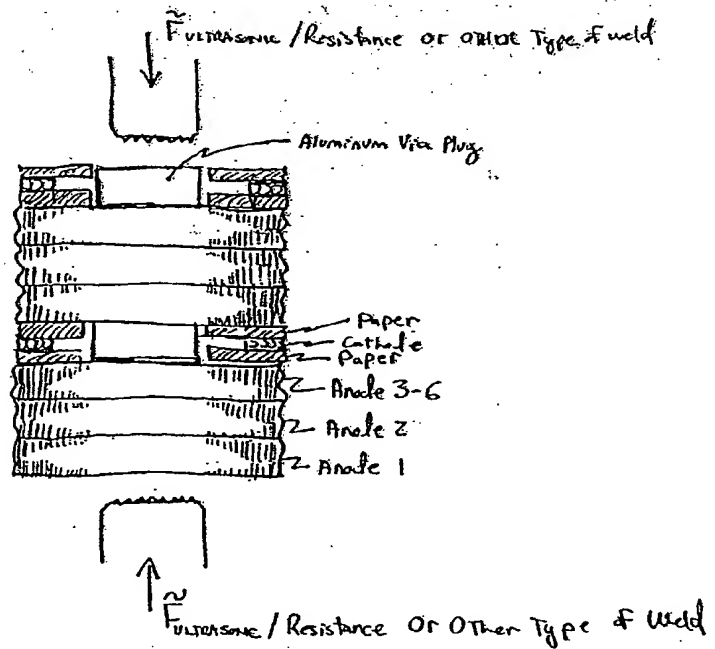 F̃ ULTRASONIC / Resistance or OTHER Type of weld
Aluminum Via Plug
Paper
Cathode
Paper
Anode 3-6
Anode 2
Anode 1
F̃ ULTRASONIC / Resistance Or Other Type of Weld